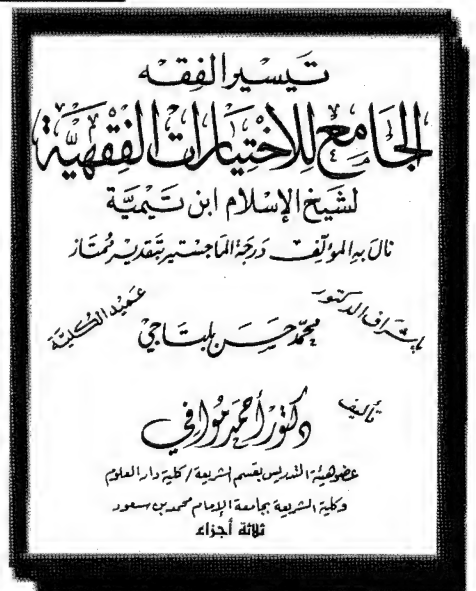 تيسير الفقه
الجامع للاختيارات الفقهية
لشيخ الإسلام ابن تيمية
نال به المؤلف درجة الماجستير بتقدير ممتاز
بإشراف الدكتور
محمد حسن بلتاجي
عميد الكلية
تأليف
دكتور أحمد موافي
عضو هيئة التدريس بقسم الشريعة / كلية دار العلوم
وكلية الشريعة بجامعة الإمام محمد بن سعود
ثلاثة أجزاء